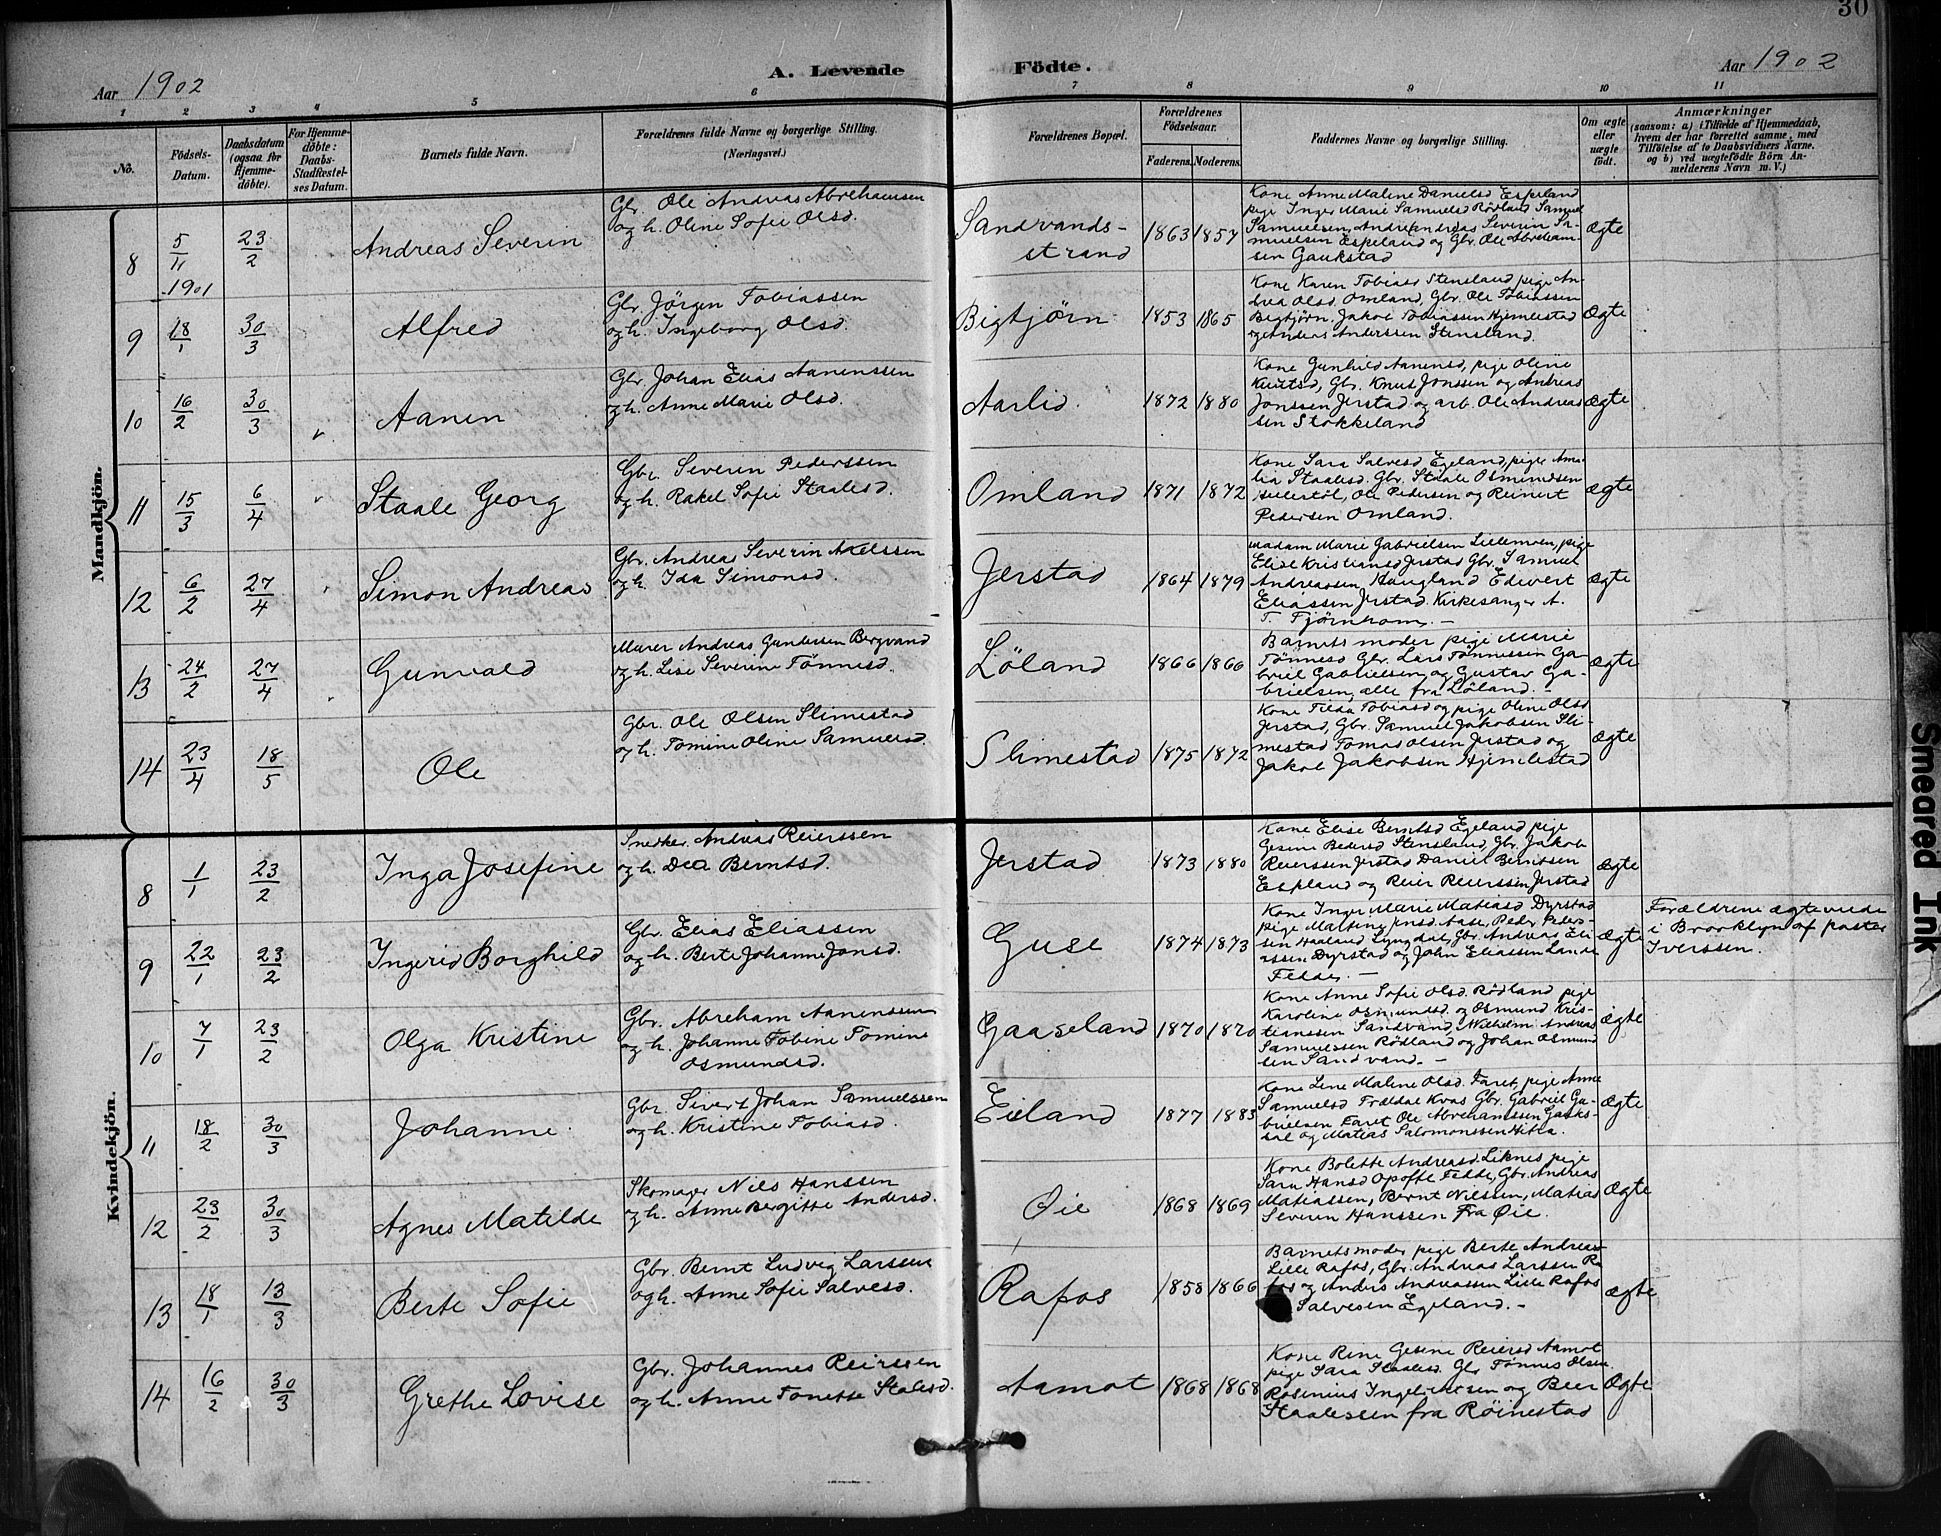 30
Aar 1902
A. Levende
Födte.
Aar 1902
1 2 3 4 5 6 7 8 9 10 11
No.
Födsels-
Datum.
Daabsdatum
(ogsaa for
Hjemme-
döbte).
For Hjemme-
döbte:
Daabs-
Stadfæstel-
ses Datum.
Barnets fulde Navn.
Forældrenes fulde Navne og borgerlige Stilling.
(Næringsvei.)
Forældrenes Bopæl.
Forældrenes
Födselsaar.
Faderens. Moderens.
Faddernes Navne og borgerlige Stilling.
Om ægte
eller
uægte
födt.
Anmærkninger
(saasom: a) i Tilfælde af Hjemmedaab,
hvem der har forrettet samme, med
Tilföielse af to Daabsvidners Navne.
og b) ved uægtefödte Börn An-
melderens Navn m. V.)
Mandkjön.
8
5/11
1901
23/2
Andreas Severin
Gbr. Ole Andreas Abrehamsen
og h. Oline Sofie Olsd.
Sandvands-
strand
1863 1857
Kone Anne Maline Danielsd Espeland
pige Inger Marie Samuelsd Rødland Samuel
Samuelsen, Andreas Severin Sa-
muelsen Espeland og Gbr. Ole Abreham-
sen Gaukstad
Ægte
9
18/1
30/3
Alfred
Gbr. Jörgen Tobiassen
og h. Ingeborg Olsd.
Bigtjørn
1853 1865
Kone Karen Tobiasd Stensland, pige An-
drea Olsd. Omland, Gbr. Ole Tobiassen
Bigtjörn, Jakob Tobiassen Hjemlestad
og Anders Anderssen Stensland.
Ægte
10
16/2
30/3
Aanen
Gbr. Johan Elias Aanenssen
og h. Anne Marie Olsd.
Aarlid.
1872 1880
Kone Gunhild Aanensd, pige Oline
Knutsd, Gbr. Knut Jonssen og Andreas
Jonssen Jerstad og arb. Ole Andreas-
sen Stokkeland
Ægte
11
15/3
6/4
Staale Georg
Gbr. Severin Pederssen
og h. Rakel Sofie Staalesd.
Omland
1871 1872
Kone Sara Salvesd Egeland, pige Ama-
lia Staalesd. Gbr. Staale Osmundsen
Ole Pedersen og Reinert
Pedersen Omland.
Ægte
12
6/2
27/4
Simon Andreas
Gbr. Andreas Severin Axelssen
og h. Ida Simonsd.
Jerstad
1864 1879
Madam Marie Gabrielsen Lillemoen, pige
Elise Kristiansd Jerstad Gbr. Samuel
Andreassen, Haugland Edevert
Eliassen Jerstad. Kirkesanger A.
T. Tjørnhom. -
Ægte
13
24/2
27/4
Gunvald
Murer Andreas Gundersen Bergvand
og h. Lise Severine Tönnesd.
Löland
1866 1866
Barnets moder pige Marie
Tönnesd Gbr. Lars Tönnessen Ga-
briel Gabrielsen og Gustav Ga-
brielsen, alle fra Løland. -
Ægte
14
23/4
18/5
Ole
Gbr. Ole Olsen Slimestad
og h. Tomine Oline Samuelsd.
Slimestad
1875 1872
Kone Tilda Tobiasd og pige Oline Olsd
Jerstad, Gbr. Samuel Jakobsen Sli-
mestad Tomas Olsen Jerstad og
Jakob Jakobsen Hjemlestad
Ægte
Kvindekjön.
8
1/1
23/2
Inga Josefine
Snedker Andreas Reierssen
og h. Dea Berntsd.
Jerstad
1873 1880
Kone Elise Berntsd Egeland pige
Gesine Pedersd Stensland, Gbr. Jakob
Reierssen Jerstad Daniel Berntsen
Espland og Reier Reierssen Jerstad
Ægte
9
22/1
23/2
Ingerid Borghild
Gbr. Elias Eliassen
og h. Berte Johanne Jonsd.
Guse
1874 1873
Kone Inger Marie Matiasd Dyrstad
pige Malting Jonsd. Aase, Peder Peder-
sen Haaland Lyngdal, Gbr. Andreas Eli-
assen Dyrstad og John Eliassen Lande
Felde. -
Ægte
Forældrene ægteviede
i Brooklyn af pastor
Iverssen.
10
7/1
23/2
Olga Kristine
Gbr. Abreham Aanenssen
og h. Johanne Tobine Tomine
Osmundsd.
Gaaseland
1870 1870
Kone Anne Sofie Olsd. Rødland pige
Karoline Osmundsd. og Osmund Kris-
tianssen Sandvand, Wilhelm Andreas
Samuelssen Rødland og Johan Osmund
sen Sandvand. -
Ægte
11
18/2
30/3
Johanne.
Gbr. Sivert Johan Samuelssen
og h. Kristine Tobiasd.
Eieland
1877 1883
Kone Line Maline Olsd. Faret, pige Anne
Samuelsd Trældal Kvas Gbr. Gabriel Ga-
brielsen Faret Ole Abrehamssen
og Matias Salomonssen
Ægte
12
23/2
30/3
Agnes Matilde
Skomager Nils Hanssen
og h. Anne Bergitte Andersd.
Øie
1868 1869
Kone Bolette Andreasd. Liknes pige
Sara Hansd Opofte Fedde, Gbr. Andreas
Matiassen, Bernt Nilssen, Matias
Severin Hanssen Fra Øie.
Ægte
13
18/1
13/3
Berte Sofie
Gbr. Bernt Ludvig Larssen
og h. Anne Sofie Salvesd.
Rafos
1858 1866
Barnets moder pige Berte Andreas-
Lille Rafos, Gbr. Andreas Larssen Ra-
fos og Anders Andreassen Lille Rafos
Salvesen Egeland. -
Ægte
14
16/2
30/3
Grethe Lovise
Gbr. Johannes Reirssen
og h. Anne Tonette Stalesd.
Aamot
1868 1868
Kone Rine Gesine Reiersd Aamot
pige Sara Staalesd. Gbr Tönnes Olsen
Rosenius Ingebretsen og Beer
Staalessen fra Röinestad
Ægte
Smeared Ink